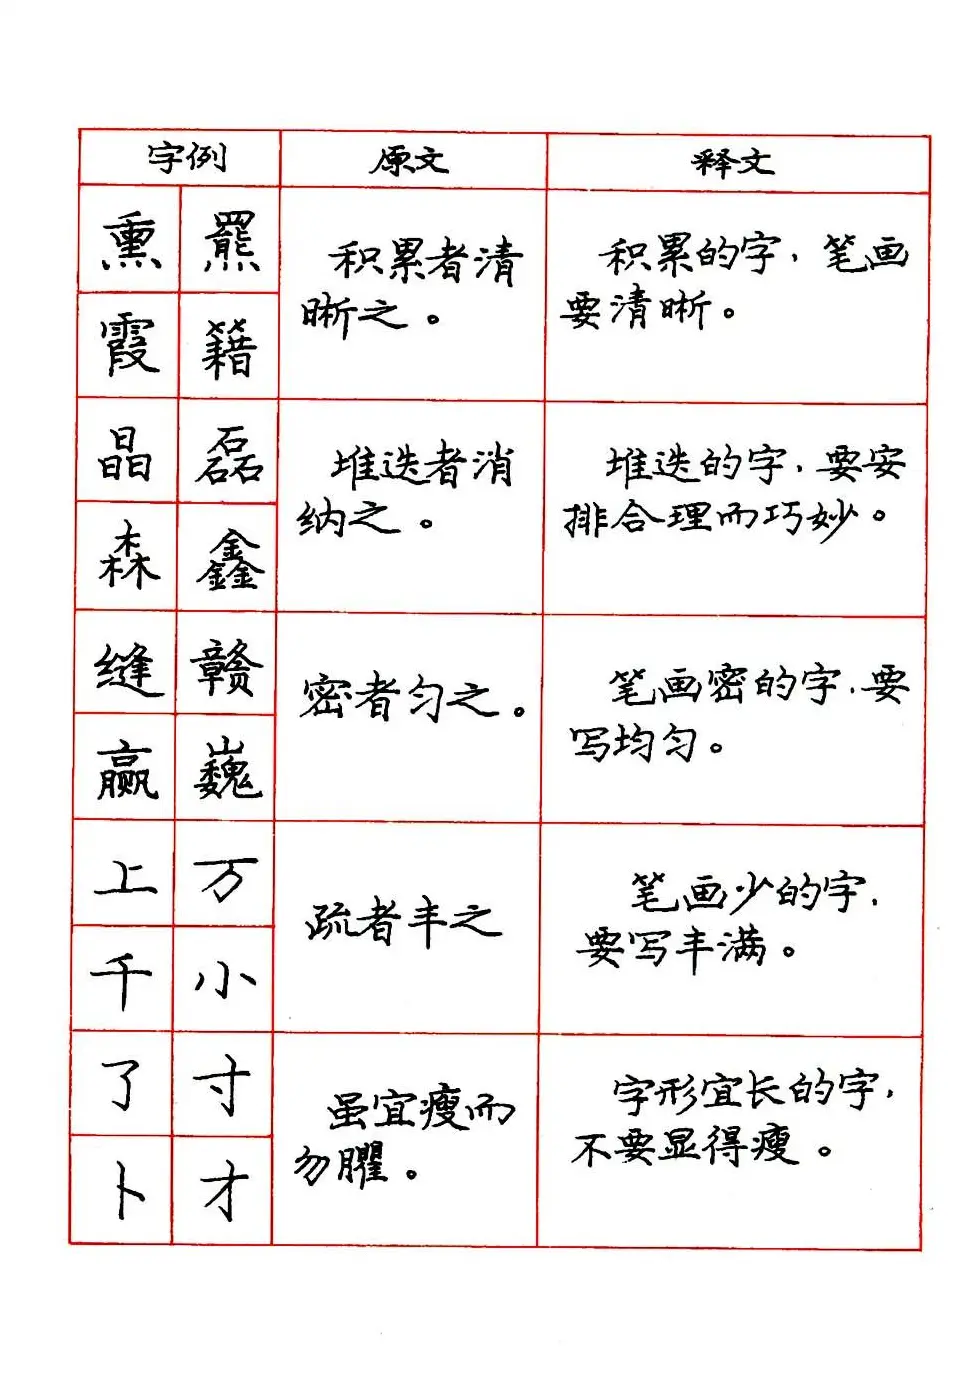 字例 原文 释文
熏 罴
积累者清
晰之。
积累的字，笔画
要清晰。
霞 籍
晶 磊
堆迭者消
纳之。
堆迭的字，要安
排合理而巧妙。
森 鑫
缝 赣
密者匀之。
笔画密的字，要
写均匀。
赢 巍
上 万
疏者丰之
笔画少的字，
要写丰满。
千 小
了 寸
虽宜瘦而
勿臞。
字形宜长的字，
不要显得瘦。
卜 才